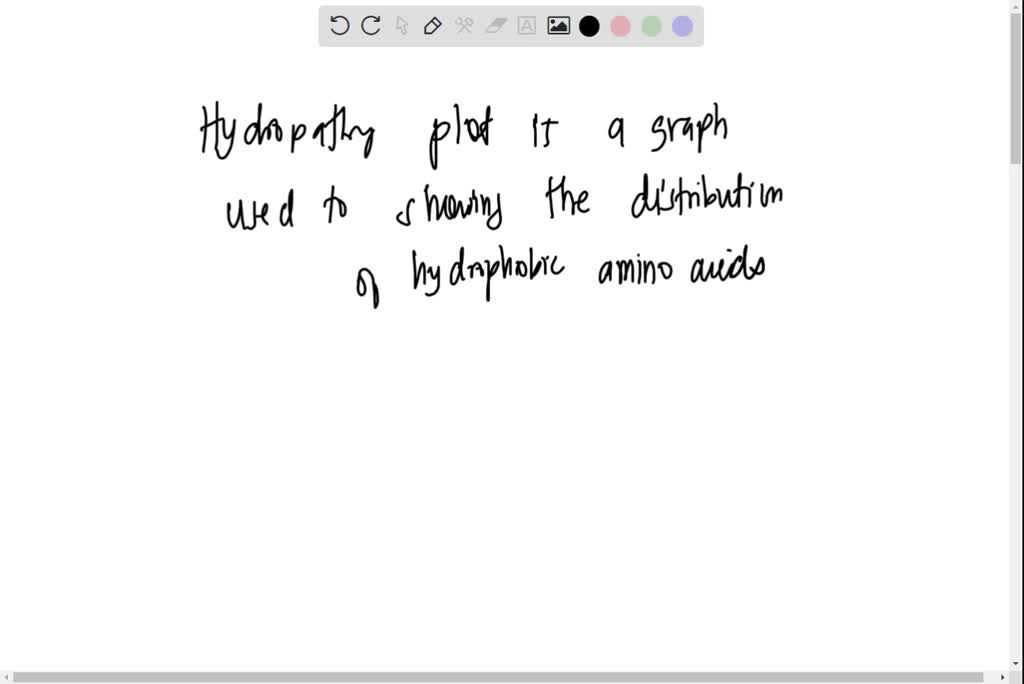 Hydropathy plot is a graph
used to showing the distribution
of hydrophobic amino acids